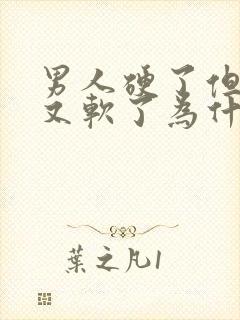 男人硬了但
又軟了為什
葉之凡1